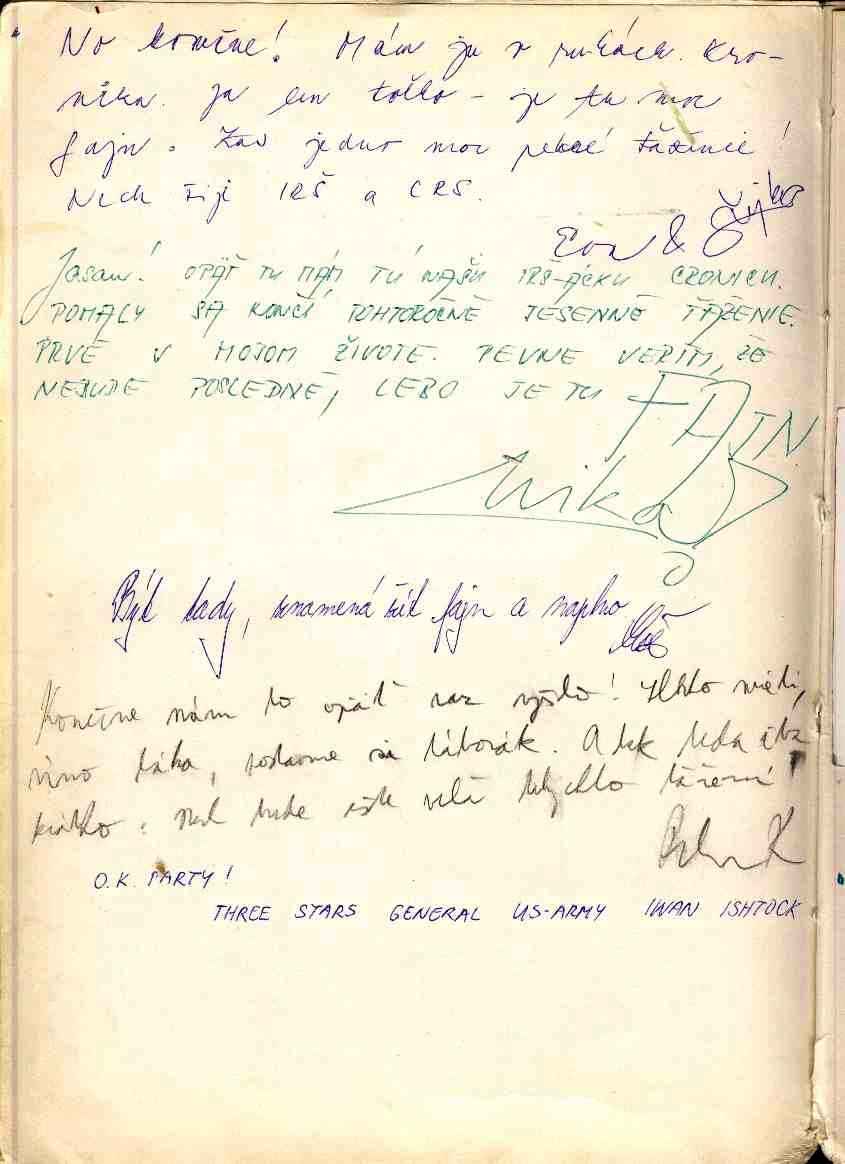 No konečne! Mám ju v rukách. Kro-
nika. Ja len toľko - je tu moc
fajn. Zas jedno moc pekné ťaženie!
Nech žije IRŠ a CRS.
Eva &
Jasan! OPÄŤ TU MÁM TÚ NAŠU IRŠ-ÁCKU CRONICU.
POMALY SA KONČÍ TOHTOROČNÉ JESENNÉ ŤAŽENIE.
PRVÉ V MOJOM ŽIVOTE. PEVNE VERÍM, ŽE
NEBUDE POSLEDNÉ, LEBO JE TU FAJN
Mika
Být tady, znamená žít fajn a naplno
Konečne nám to opäť raz vyšlo! Svieti,
víno, postavme si táborák. A tak
krátko. Nech bude ešte veľa takýchto ťažení!
O.K. PARTY!
THREE STARS GENERAL US-ARMY IWAN ISHTOCK